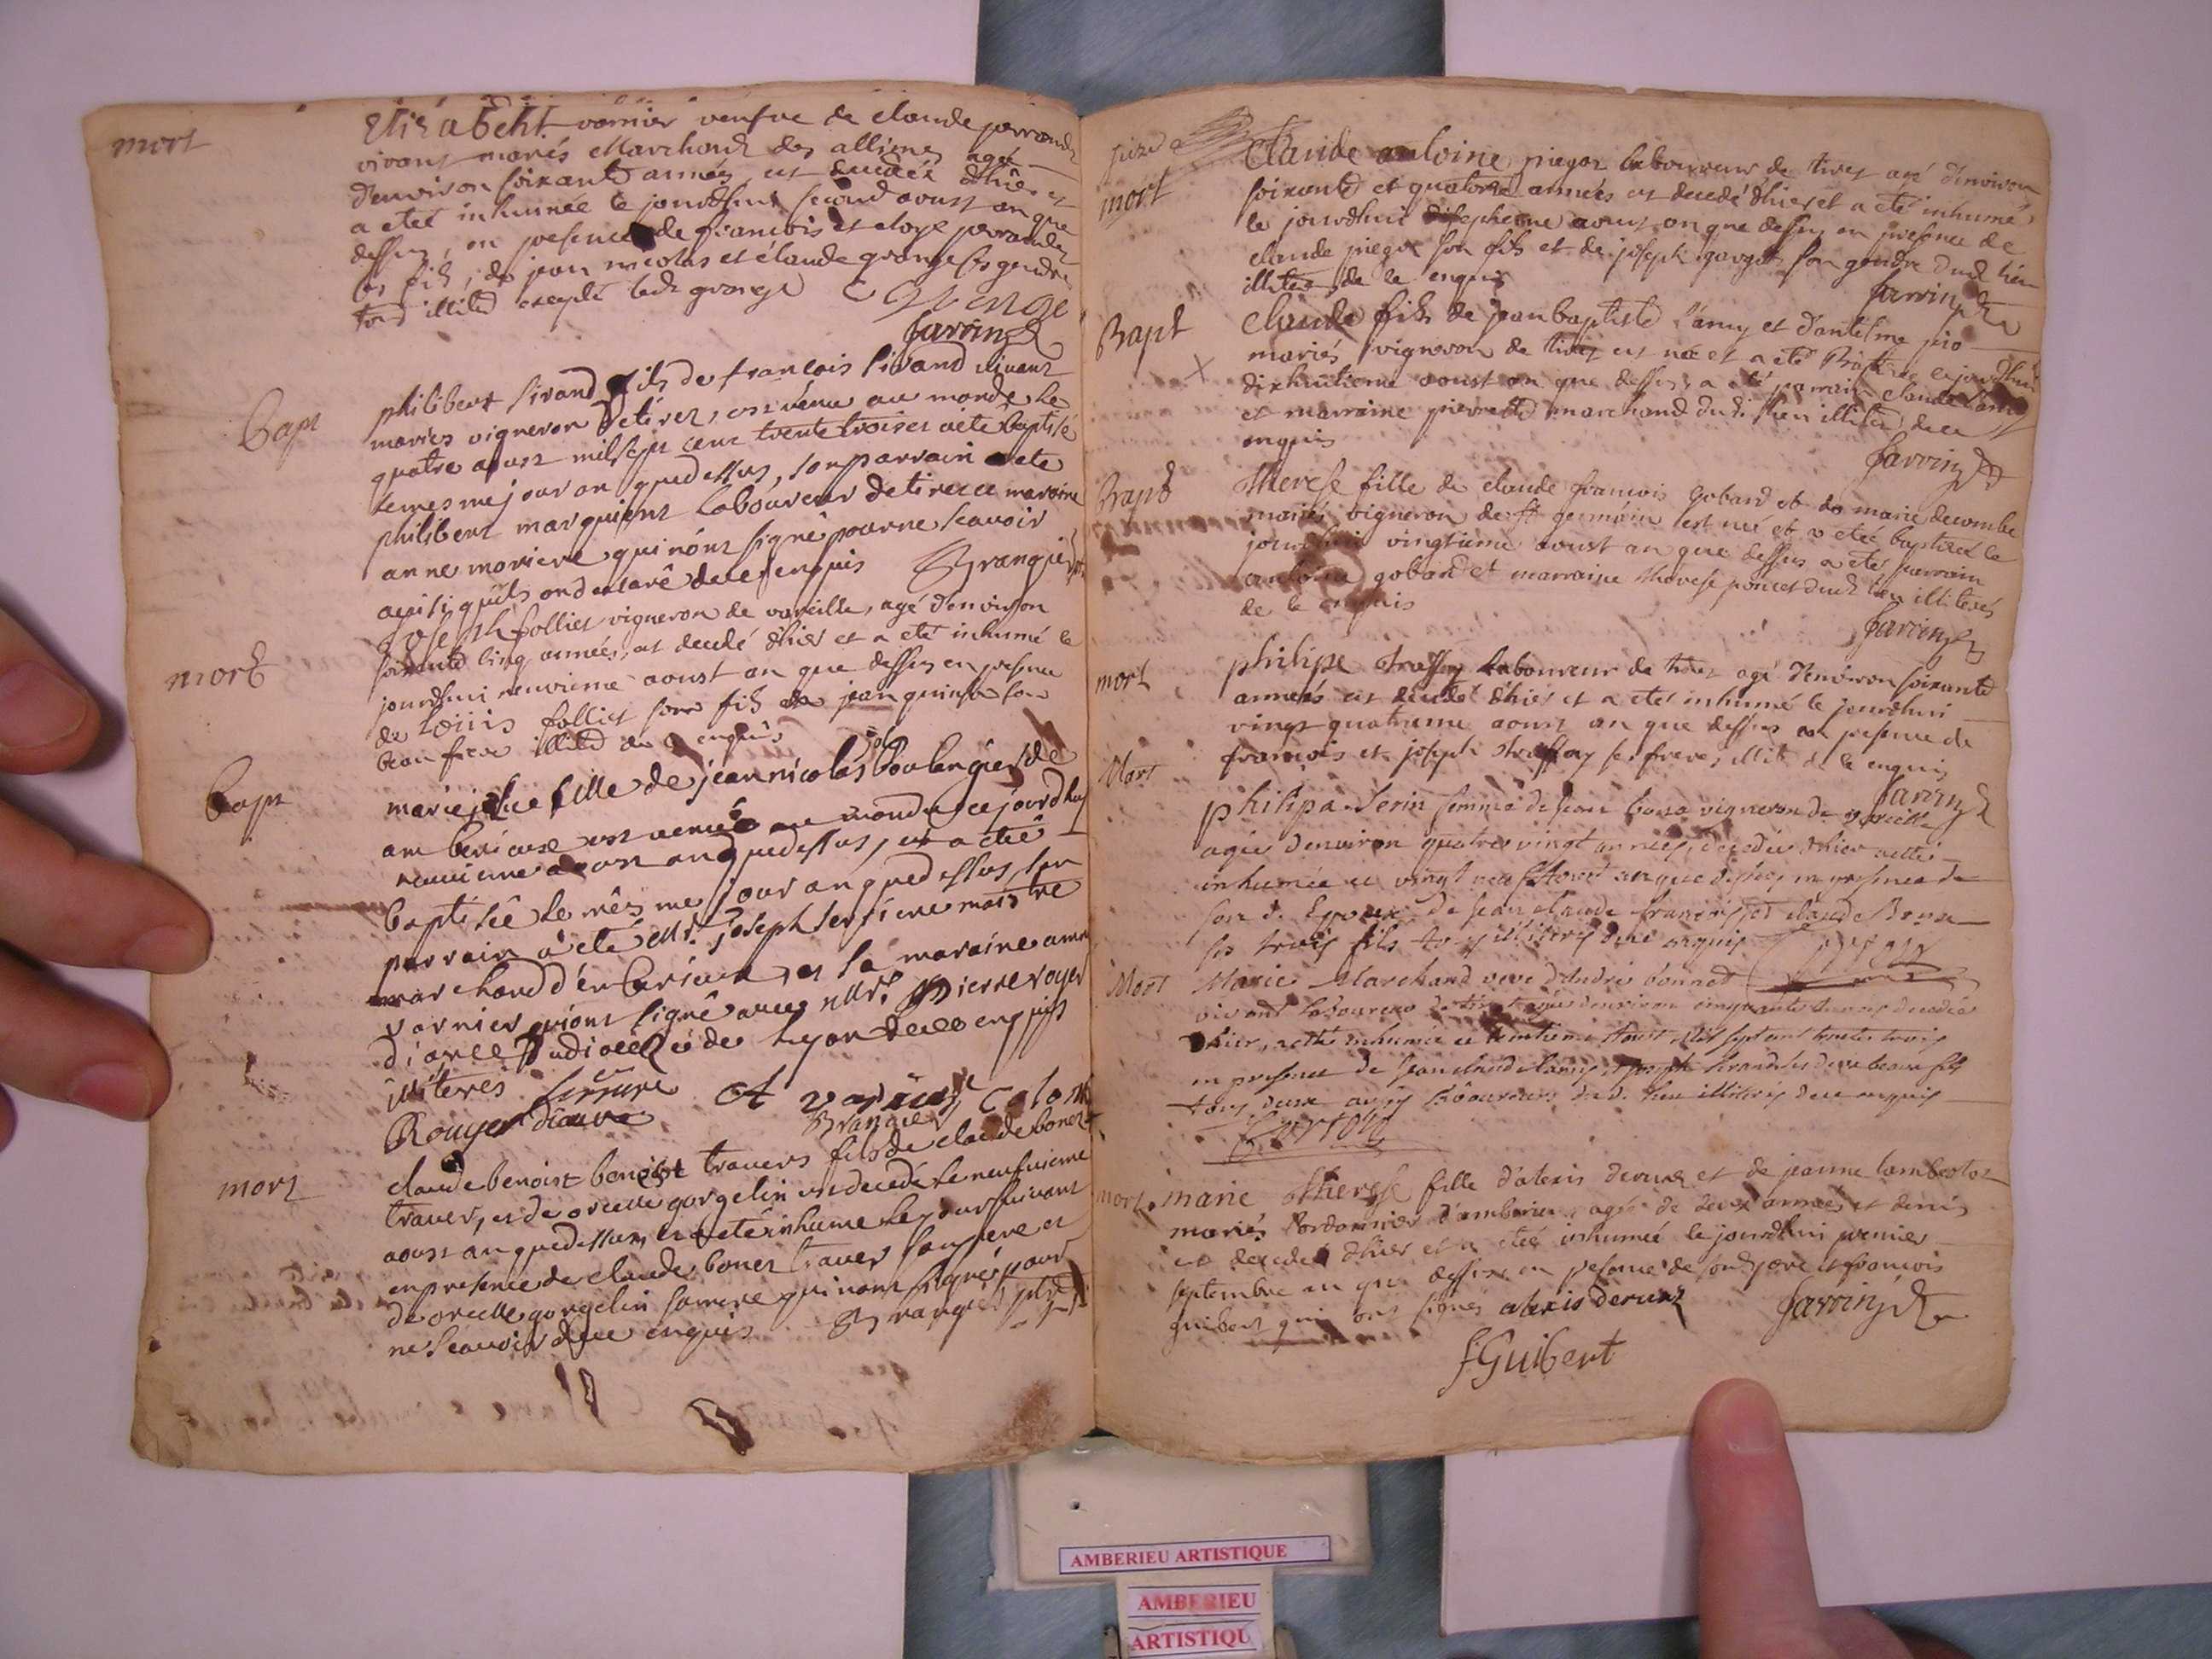 mort
Elizabeht varnier venfve de claude perrondet
vivant mariés Marchand des allimes agée
d'environ soixante années, est decedée d'hier et
a eteé inhumée le jourd'hui second aoust an que
dessus, en presence de francois et eloye perrandet
ses fils, de jean nicolas et claude grange ses gendre
tous illité excepté ledt grange C Grange
Jarrin
bapt
philibert sirand fils de francois sirand vivant
mariés vigneron de tirez, est venu au monde le
quatre aoust mil sept cent trente trois et a eté baptisé
le mesme jour an que dessus, son parrain a ete
philibert marquient laboureur de tirez et maraine
anne moriere qui n'ont signé pour ne scavoir
ainsi qu'ils ont declaré de ce enquis Brangier
mort
Joseph folliet vigneron de vareille, agé d'environ
soixante cinq années, est decedé d'hier et a eté inhumé le
jourd'hui neuvieme aoust an que dessus en presence
de Loüis folliet son fils de jean quinson son
beau frere illité de ce enquis
bapt
marie fille de jean nicolas boulangier de
amberieux est venuë au monde ce jourd'huy
neuvieme aoust an que dessus, et a eteé
baptisée le mésme jour an que dessus, son
parrain a eté Mr. joseph serriere maistre
marchand d'emberieux, et la maraine anne
varnier qui ont signé avec Mr. pierre royer
illiterés
Brangier
mort
claude benoist travers fils de claude bonet
traver, et de orcelle gorgelin est decedé le neufvieme
aoust an que dessus, et a eté inhumé le jour suivant
en presence de claude bonet traver son pere et
de orcelle gorgelin sa mere qui n'ont signé pour
ne scavoir de ce enquis Brangier
mort
Claude antoine piegoz laboureur de tirez agé d'environ
soixante et quatorze années est decedé d'hier et a eté inhumé
le jourd'hui aoust an que dessus en presence de
claude piegoz son fils et de joseph gargot son gendre dudt lieu
illités de ce enquis
Jarrin
Bapt
Claude fils de jean baptiste Lamy et d'antelme pio
mariés vigneron de tirez est né et a eté Baptisé ce jourd'hui
dixhuitieme aoust an que dessus, a eté parrain claude Lamy
et marraine pierrette marchand dudt lieu illités de ce
enquis
Jarrin
Bapt
Therese fille de claude francois gobard et de marie decombe
mariés vigneron de st germain est née et a eteé baptisée le
jourd'hui vingtieme aoust an que dessus a eté parrain
antoine gobard et marraine therese poncet dudt lieu illiterés
de ce enquis
Jarrin
mort
philipe laboureur de tirez agé d'environ soixante
années est decedé d'hier et a eté inhumé le jourd'hui
vingt quatrieme aoust an que dessus en presence de
francois et joseph ses freres, illit de ce enquis
Jarrin
Mort
philipa Serin femme de jean bona vigneron de vareille
agée d'environ quatre vingt années, decedée d'hier a etté
inhumée ce vingt neuf Aout an que dessus en presence de
son d. Epoux de jean claude francois et claude Bona
ses trois fils tous illiterés de ce enquis
Mort
Marie Marchand veve d'André bonnet
vivant laboureur de tirez agée d'environ cinquante années decedée
d'hier, a etté inhumée ce trentieme Aout Mil sept cent trente trois
en presence de jean claude lamy et joseph sirand ses deux beaux fils
tous deux aussy laboureurs du d. lieu illiterés de ce enquis
mort
marie therese fille d'alexis derunz et de jeanne lambertoz
mariés Cordonnier d'amberieu, agée de deux années et demis
est decedeé d'hier et a eteé inhumeé le jourd'hui premier
septembre an que dessus en presence de son pere et francois
guibert qui ont signés alexis derunz Jarrin
f Guibert
AMBERIEU ARTISTIQUE
AMBERIEU
ARTISTIQU